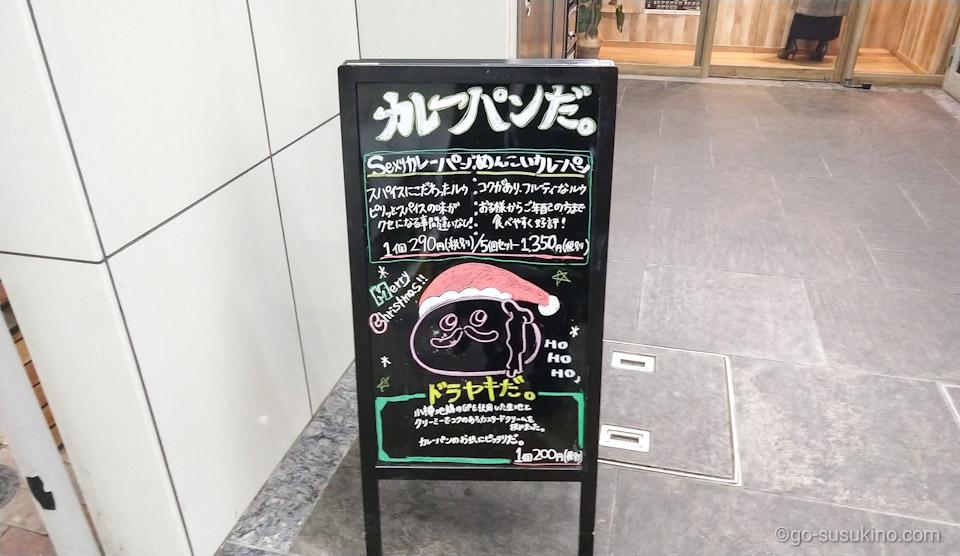 カレーパンだ。
Sexyカレーパン めんこいカレーパン
スパイスにこだわったルウ
ピリッとスパイスの味が
クセになる事間違いなし!
コクがあり、フルーティなルウ
お子様からご年配の方まで
食べやすく好評!
1個290円(税別)/5個セット1,350円(税別)
Merry
Christmas!!
HO
HO
HO♪
ドラヤキだ。
小樽地鶏の卵を使用した生地と
クリーミーでコクのあるカスタードクリームを
カレーパンのお供にピッタリだ。
1個200円(税別)
©go-susukino.com